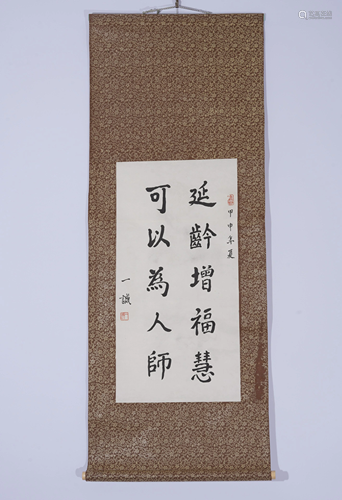 甲申年夏
延齡增福慧
可以為人師
一誠